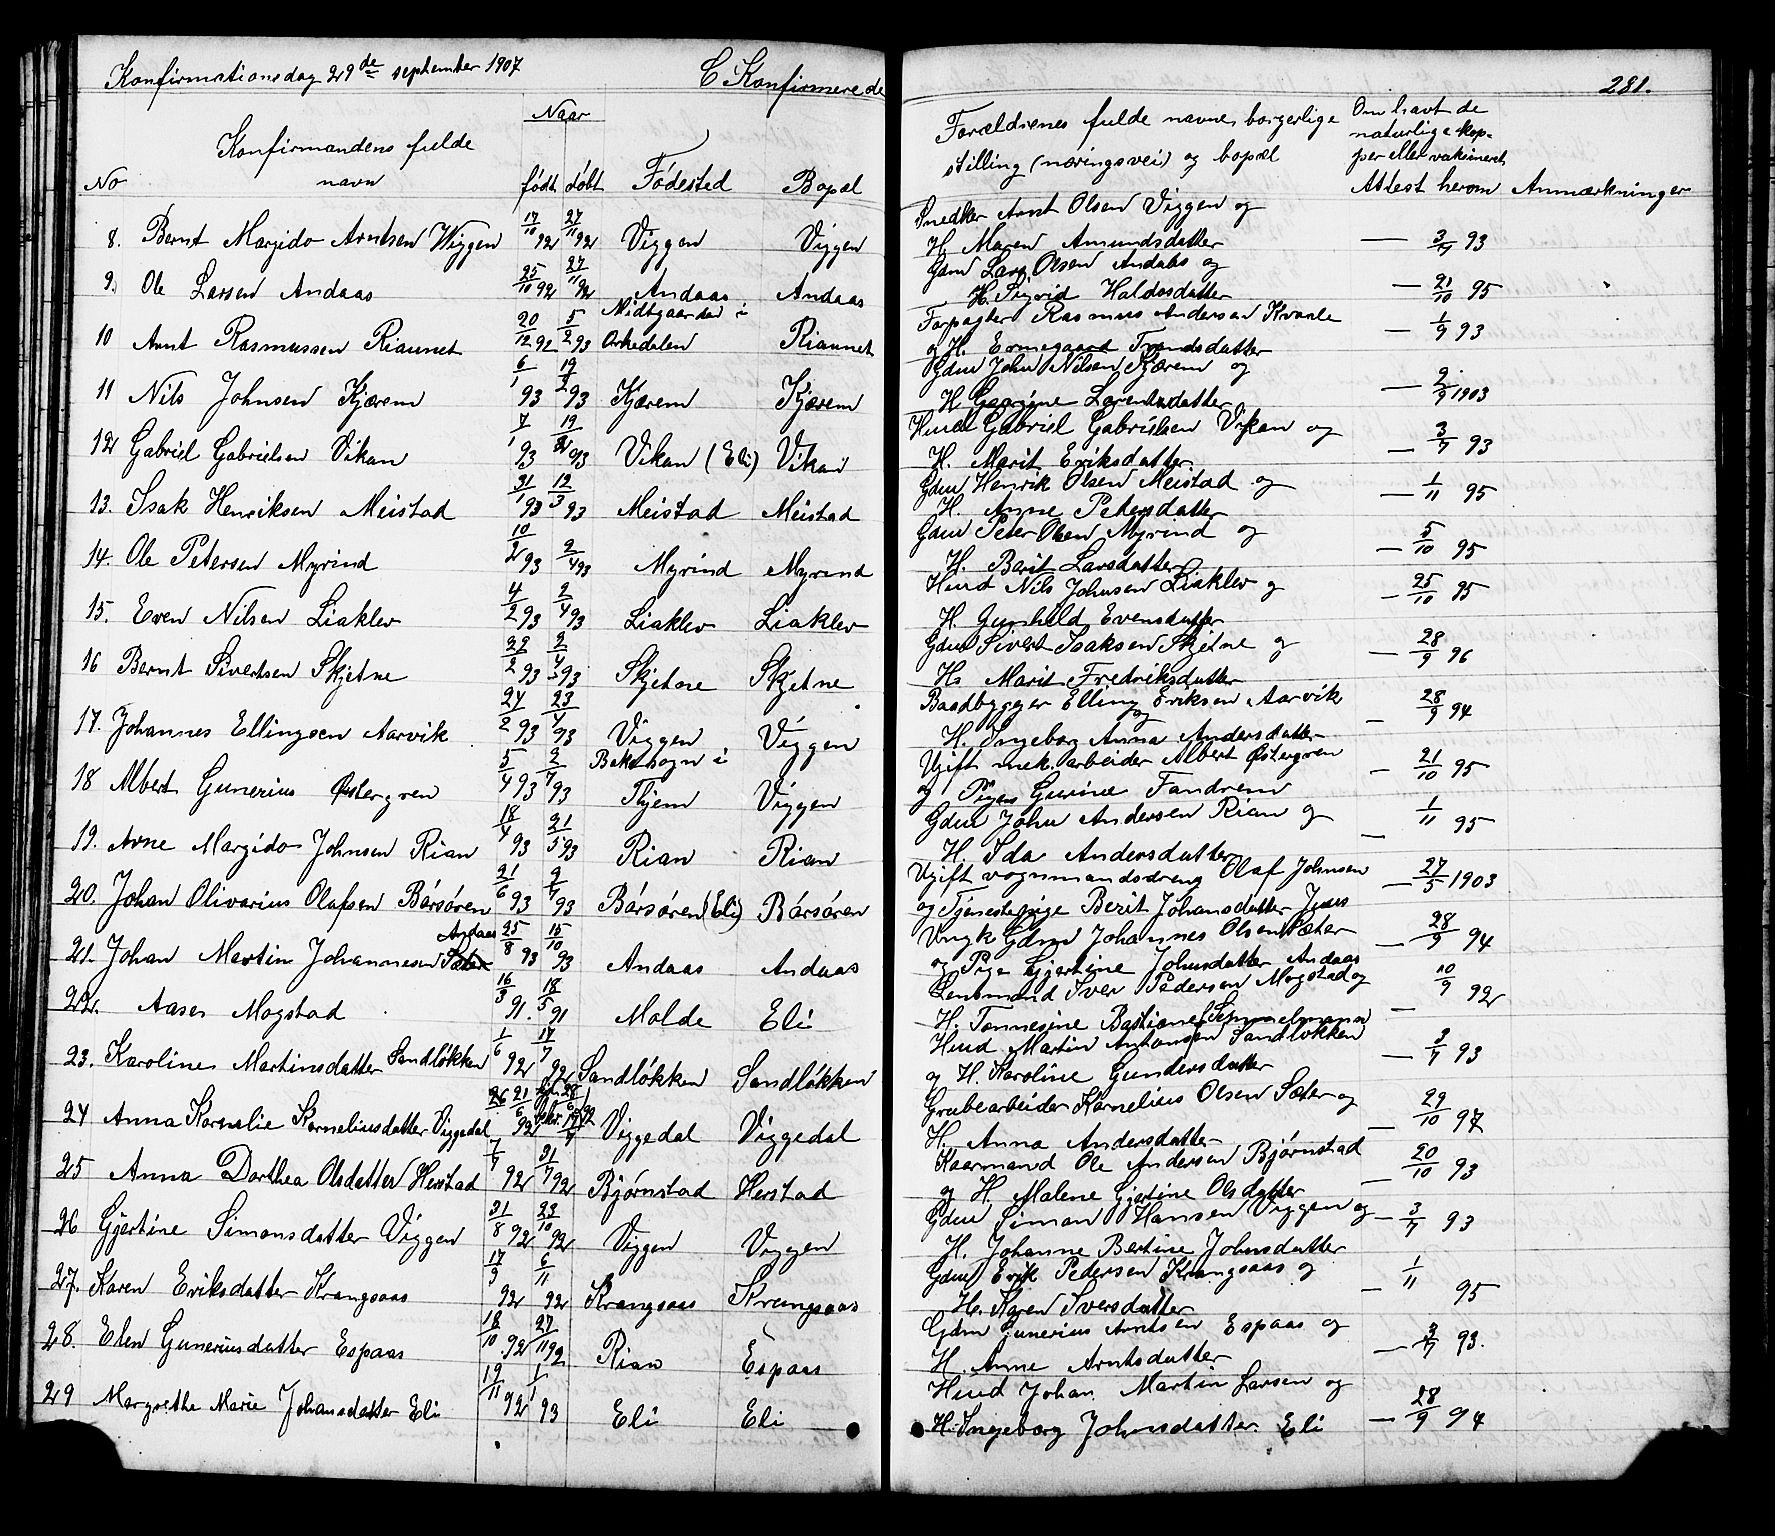 Konfirmationsdag 29de september 1907 C Konfirmerede 281.
No Konfirmandens fulde navn Naar født døbt Fødested Bopæl Forældrenes fulde navne, borgerlige stilling (næringsvei) og bopæl Om havt de naturlige kopper eller vaksineret, Attest herom Anmærkninger
8. Bernt Margido Arntsen Wiggen 17/10 92 27/11 92 Viggen Viggen Snedker Arnt Olsen Viggen og
H. Maren Amundsdatter — 3/7 93
9. Ole Larsen Andaas 25/10 92 27/11 92 Andaas Andaas Gdm Lars Olsen Andaas og
H. Sigrid Haldosdatter — 21/10 95
10 Arnt Rasmussen Riaunet 20/12 92 5/2 93 Midtgaarden i Orkedalen Riaunet Forpagter Rasmus Andersen Kvaale
og H. Ermegaard Trondsdatter — 1/9 93
11 Nils Johnsen Kjærem 6/1 93 19/2 93 Kjærem Kjærem Gdm John Nilsen Kjærem og
H. Georgine Larentsdatter — 2/9 1903
12 Gabriel Gabrielsen Vikan 7/1 93 19/2 93 Vikan (Eli) Vikan Husm Gabriel Gabrielsen Vikan og
H. Marit Eriksdatter — 3/7 93
13. Isak Henriksen Meistad 31/1 93 12/3 93 Meistad Meistad Gdm Henrik Olsen Meistad og
H. Anne Petersdatter — 1/11 95
14. Ole Petersen Myrind 10/2 93 2/4 93 Myrind Myrind Gdm Peter Olsen Myrind og
H. Berit Larsdatter — 5/10 95
15. Even Nilsen Liaklev 4/2 93 2/4 93 Liaklev Liaklev Husd Nils Johnsen Liaklev og
H. Gunhild Evensdatter — 25/10 95
16 Bernt Sivertsen Skjetne 22/2 93 2/4 93 Skjetne Skjetne Gdm Sivert Isaksen Skjetne og
H. Marit Fredriksdatter — 28/9 96
17. Johannes Ellingsen Aarvik 24/2 93 23/4 93 Viggen Viggen Baadbygger Elling Eriksen Aarvik
og H. Ingeborg Anna Andersdatter — 28/9 94
18 Albert Gunerius Østergren 5/4 93 2/7 93 Bakesogn i Thjem Viggen Ugift mek. arbeider Albert Østergren
og Pigen Gurine Fandrem — 21/10 95
19. Arne Margido Johnsen Rian 18/4 93 21/5 93 Rian Rian Gdm John Andersen Rian og
H. Ida Andersdatter — 1/11 95
20. Johan Olivarius Olafsen Börsören 21/6 93 2/7 93 Börsören (Eli) Börsören Ugift vognmandsdreng Olaf Johnsen
og Tjenestepige Berit Johansdatter — 27/5 1903
21. Johan Martin Johannesen Andaas 25/8 93 15/10 93 Andaas Andaas Ungk Gdm Johannes Olsen Sæter
og Pige Gjertine Johnsdatter Andaas — 28/9 94
22. Aasen Mogstad 16/3 91. 18/5 91 Molde Eli Lensmand Iver Pedersen Mogstad og
H. Tonnesine Bastiane Semmelmann — 10/9 92
23. Karoline Martinsdatter Sandlökken 1/6 92 17/7 92 Sandlökken Sandlökken Husd Martin Antonsen Sandlökken
og H. Karoline Gundersdatter — 3/7 93
24 Anna Kornelie Korneliusdatter Viggedal 21/6 92 Viggedal Viggedal Grubearbeider Kornelius Olsen Sæter og
H. Anna Andersdatter — 29/10 97
25 Anna Dorthea Olsdatter Herstad 7/7 92 31/7 92 Bjørnstad Herstad Kaarmand Ole Andersen Bjørnstad
og H. Malene Gjertine Olsdatter — 20/10 93
26 Gjertine Simonsdatter Viggen 31/8 92 23/10 92 Viggen Viggen Gdm Simon Hansen Viggen og
H. Johanne Bertine Johnsdatter — 3/7 93
27. Karen Eriksdatter Krangsaas 17/9 92 6/11 92 Krangsaas Krangsaas Gdm Erik Pedersen Krangsaas og
H. Karen Iversdatter — 1/11 95
28. Elen Guneriusdatter Espaas 18/10 92 27/11 92 Rian Espaas Gdm Gunerius Arntsen Espaas og
H. Anne Arntsdatter — 3/7 93.
29 Margrethe Marie Johansdatter Eli 19/11 92 1/1 93 Eli Eli Husd Johan Martin Larsen og
H. Ingeborg Johnsdatter Eli — 28/9 94